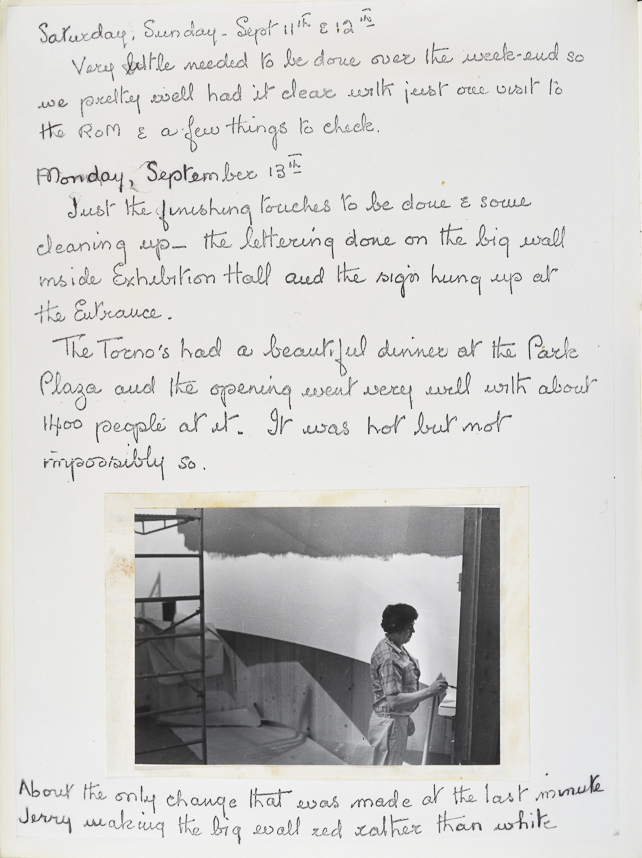 Saturday, Sunday - Sept 11th & 12th
Very little needed to be done over the week-end so
we pretty well had it clear with just one visit to
the ROM & a few things to check.
Monday, September 13th
Just the finishing touches to be done & some
cleaning up - the lettering done on the big wall
inside Exhibition Hall and the sign hung up at
the Entrance.
The Torno's had a beautiful dinner at the Park
Plaza and the opening went very well with about
1400 people at it. It was hot but not
impossibly so.
About the only change that was made at the last minute
Jerry making the big wall red rather than white